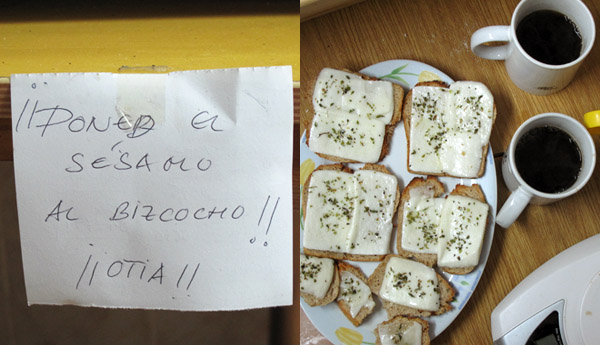 ¡¡PONER EL
SÉSAMO
AL BIZCOCHO!!
¡¡OTIA!!